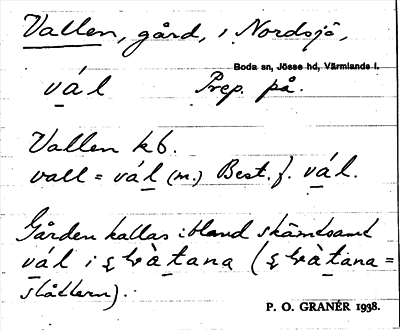 Vallen, gård, i Nordsjö,
Boda sn, Jösse hd, Värmlands l.
vál Prep. på.
Vallen kb.
vall = vál (m.) Best. f. vál.
Gården kallas ibland skämtsamt
vál i
slåttern).
P. O. GRANÉR 1938.